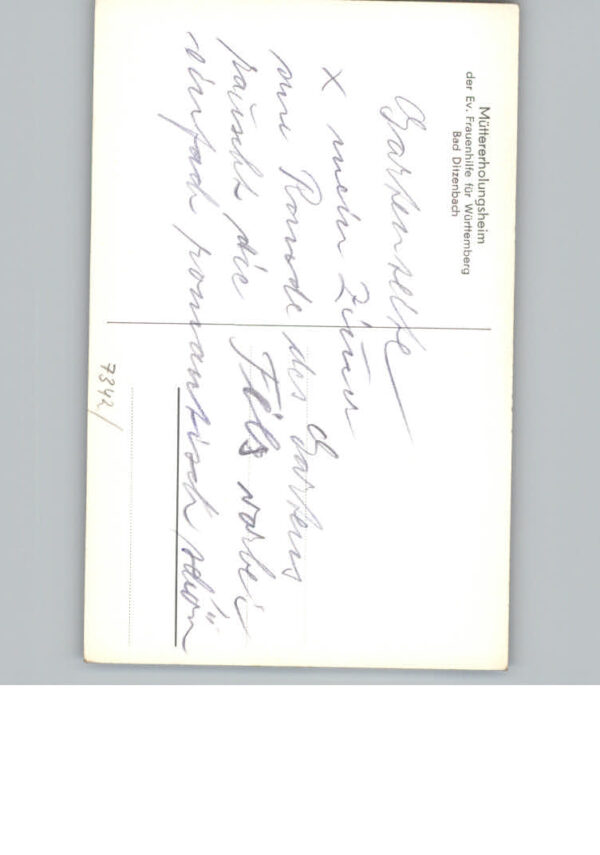 Müttererholungsheim
der Ev. Frauenhilfe für Württemberg
Bad Ditzenbach
Gartenseite
x mein Zimmer
am Rande des Gartens
rauscht die Fils vorbei
einfach romantisch schön
7342/